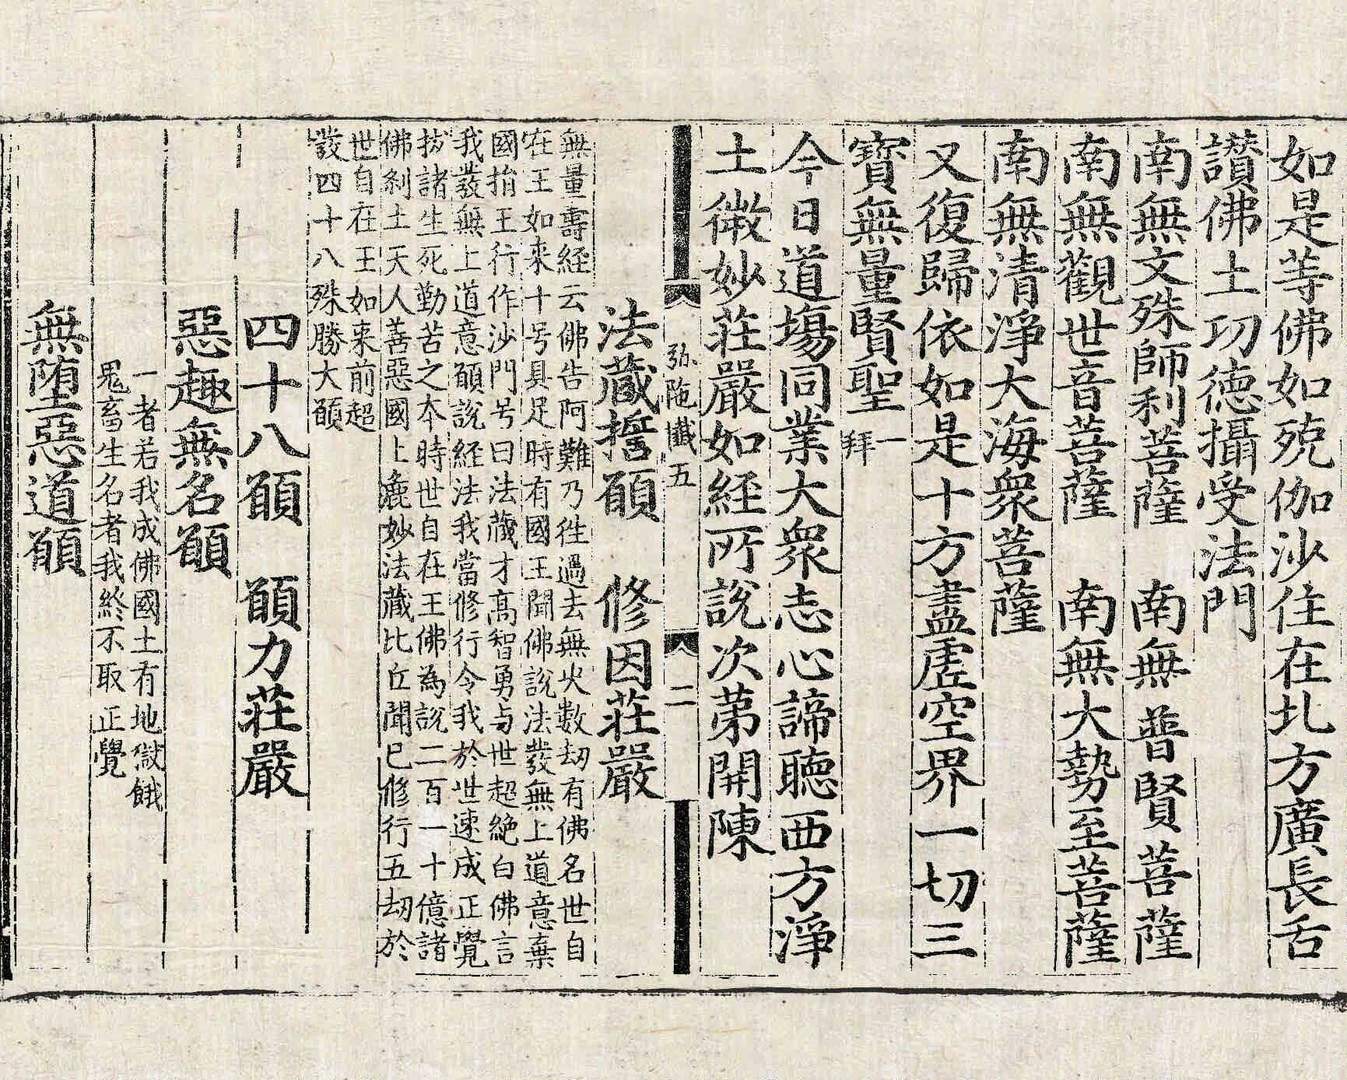 如是等佛如殑伽沙住在北方廣長舌
讃佛土功德攝受法門
南無文殊師利菩薩　南無普賢菩薩
南無觀世音菩薩　南無大勢至菩薩
南無清淨大海衆菩薩
又復歸依如是十方盡虛空界一切三
寶無量賢聖一拜
今日道場同業大衆志心諦聽西方淨
土微妙莊嚴如經所說次第開陳
弥陁懴五　二
法藏誓願　修因莊嚴
無量壽經云佛告阿難乃徃過去無央數劫有佛名世自
在王如來十号具足時有國王聞佛說法發無上道意棄
國捐王行作沙門号曰法藏才高智勇与世超絶白佛言
我發無上道意願說經法我當修行令我於世速成正覺
拔諸生死勤苦之本時世自在王佛為說二百一十億諸
佛刹土天人善惡國土麁妙法藏比丘聞已修行五劫於
世自在王如来前超
發四十八殊勝大願
四十八願　願力莊嚴
惡趣無名願
一者若我成佛國土有地獄餓
鬼畜生名者我終不取正覺
無堕惡道願